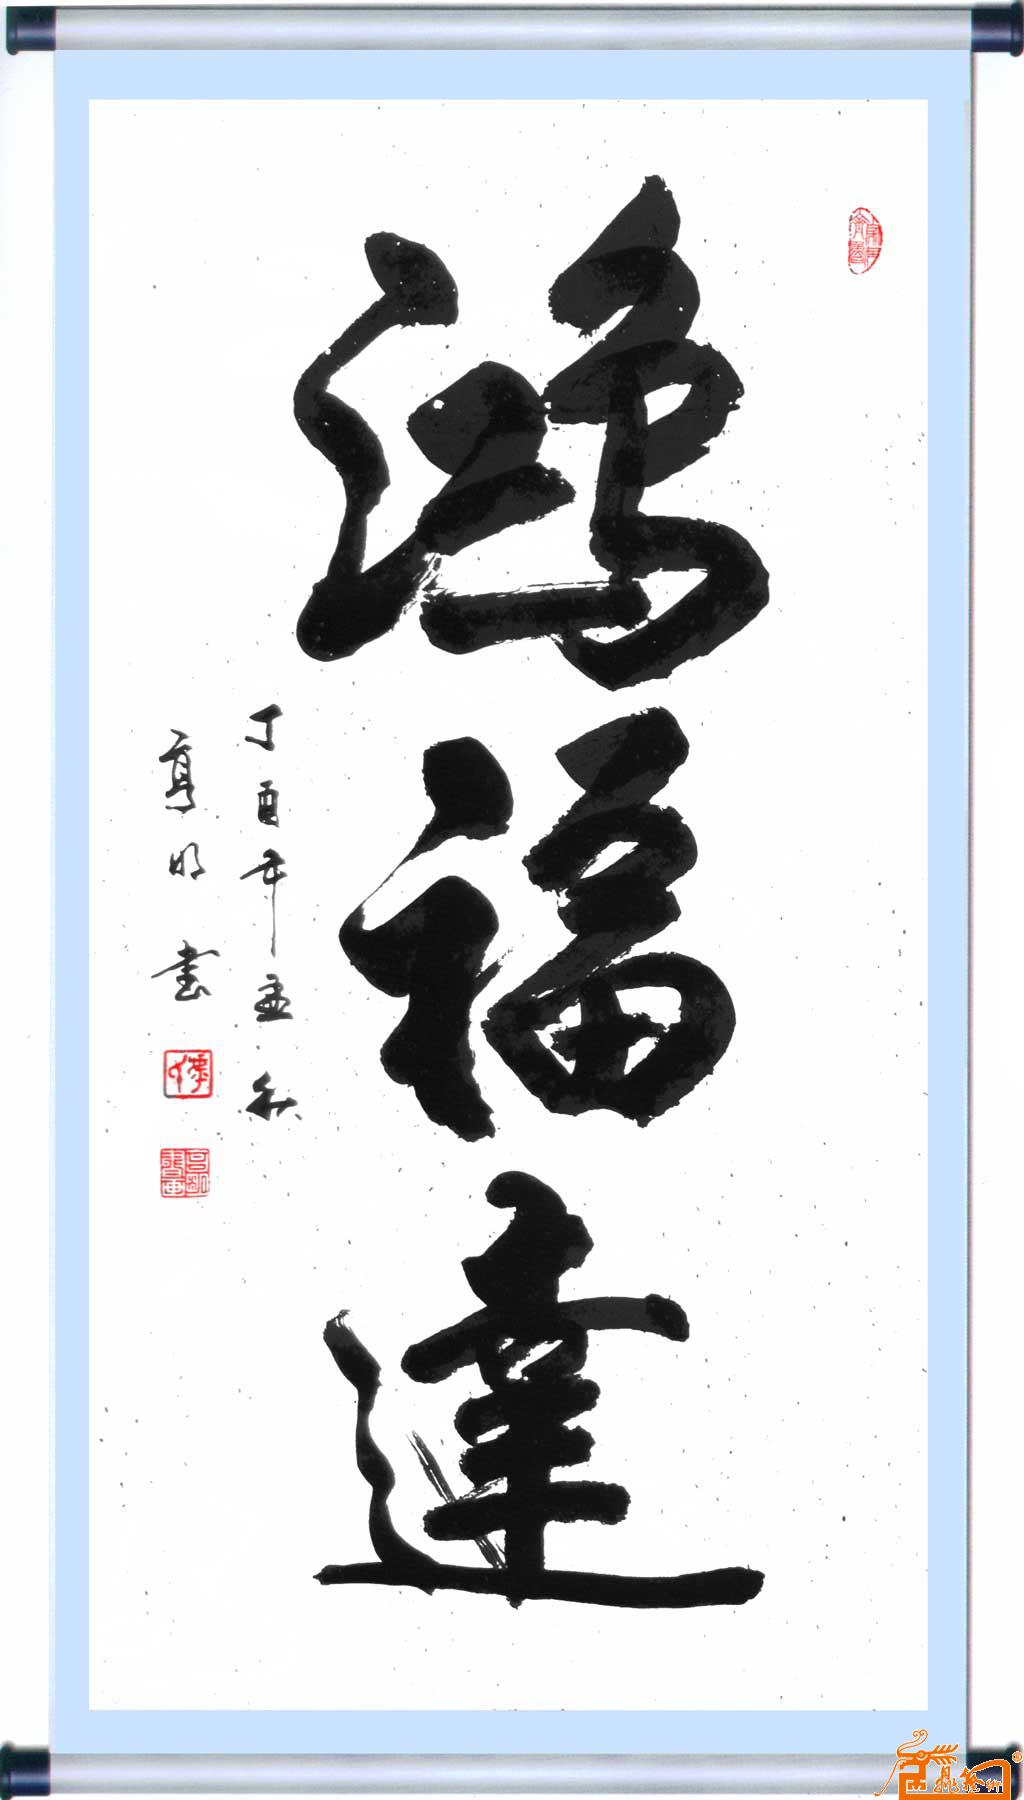 鴻福達
丁酉年孟秋
亮明書